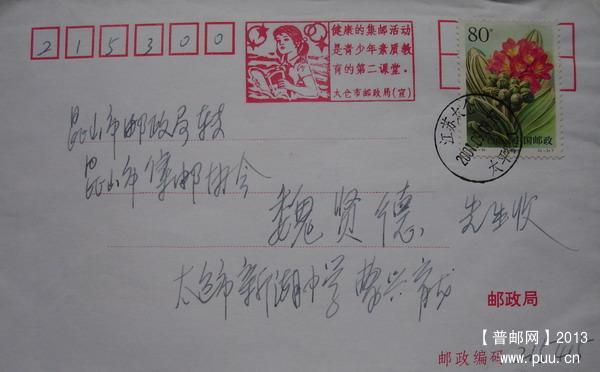 215300
健康的集邮活动
是青少年素质教
育的第二课堂.
太仓市邮政局(宣)
80
中国邮政
江苏太仓
太平
昆山市邮政局转
昆山市集邮协会
魏贤德 先生收
太仓市新湖中学
邮政局
邮政编码
【普邮网】2013
www.puu.cn